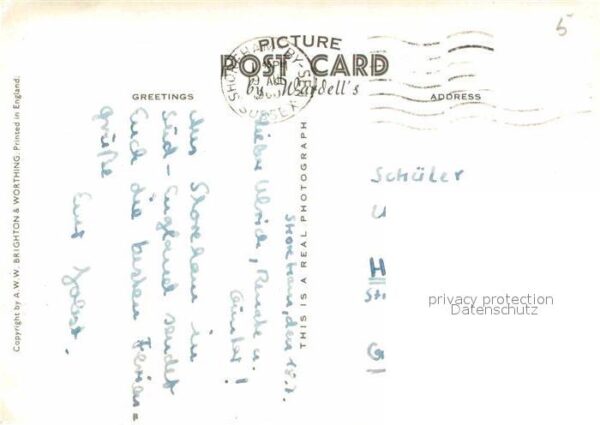 PICTURE
POST CARD
by Wardell's
GREETINGS
ADDRESS
SHOREHAM-BY-SEA
SUSSEX
5
Shoreham, den 18.7.
Liebe Ulrich, Renate u.
Günter!
Aus Shoreham in
Süd-England sendet
Euch die besten Ferien=
grüße
Euer
THIS IS A REAL PHOTOGRAPH
Copyright by A.W.W. BRIGHTON & WORTHING. Printed in England.
Schüler
U
H
St
G
privacy protection
Datenschutz